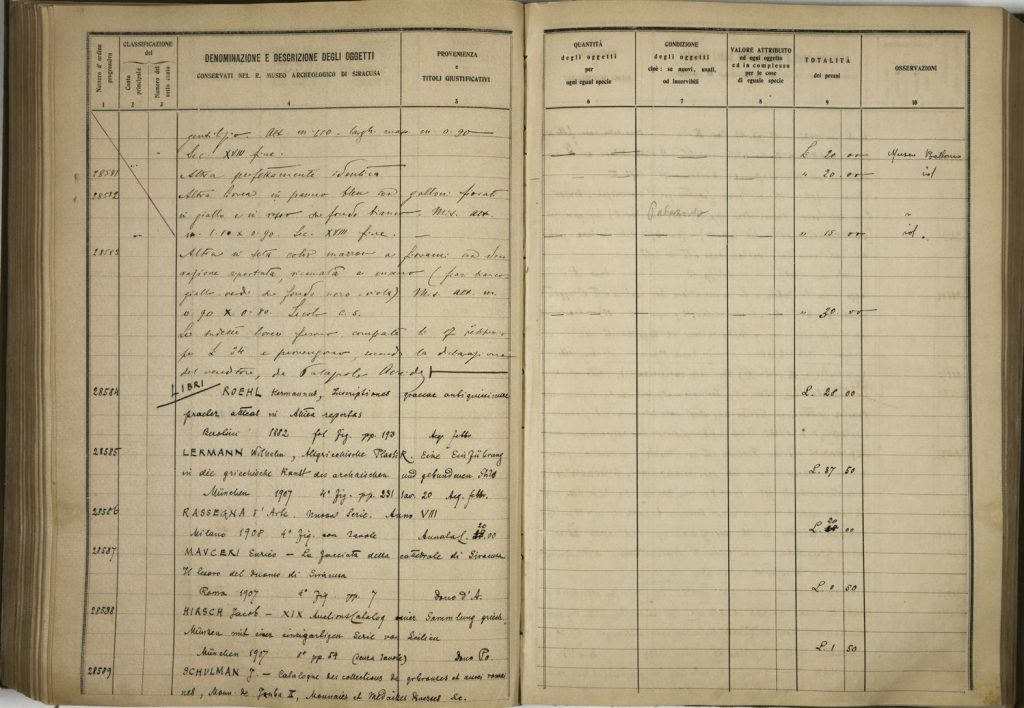 Numero d'ordine progressivo
CLASSIFICAZIONE
del
Conto principale
Numero del sotto conto
DENOMINAZIONE E DESCRIZIONE DEGLI OGGETTI
CONSERVATI NEL R. MUSEO ARCHEOLOGICO DI SIRACUSA
PROVENIENZA
e
TITOLI GIUSTIFICATIVI
1 2 3 4 5
Alt. m. 1.10 m. 0.90
Sec. XVIII fine.
28581 Altra perfettamente identica
28582 Altra borsa in panno con galloni
in giallo e in rosso su fondo bianco. Mis. alt.
m. 1.10 x 0.90. Sec. XVIII fine.
28583 Altra in seta color marron a
ricamata a (
giallo verde su fondo nero viola) Mis. alt. m.
0.90 x 0.80. Secolo c. s.
Le sudette borse furono comprate
per L 34 e provengono, secondo la dichiarazione
del venditore, da Palazzolo Acreide
LIBRI
28584 ROEHL Hermannus, Inscriptiones graecae antiquissimae
praeter atticas in Attica repertas
Berolini 1882 fol fig. pp. 193 Acq. febbr.
28585 LERMANN Wilhelm, Altgriechische Plastik. Eine Einführung
in die griechische Kunst des archaischen und gebundenen Stils
München 1907 4° fig. pp. 231 tav. 20 Acq. febbr.
28586 RASSEGNA d'Arte. Nuova Serie. Anno VIII
Milano 1908 4° fig. con tavole Annata L. 20.00
28587 MAUCERI Enrico - La facciata della cattedrale di Siracusa
Il tesoro del duomo di Siracusa
Roma 1907 4° fig. pp. 7 Dono d'A.
28588 HIRSCH Jacob - XIX Auctions Catalog einer Sammlung griech.
Münzen mit einer einzigartigen Serie von Sicilien
München 1907 8° pp. 54 (senza tavole) Dono
28589 SCHULMAN J. - Catalogue des collections de
Monn. de II, Monnaies et Médailles Diverses de.
QUANTITÀ
degli oggetti
per
ogni egual specie
CONDIZIONE
degli oggetti
cioè: se nuovi, usati,
od inservibili
VALORE ATTRIBUITO
ad ogni oggetto
ed in complesso
per le cose
di eguale specie
TOTALITÀ
dei prezzi
OSSERVAZIONI
6 7 8 9 10
L 20 00 Museo Bellomo
" 20 00 id
" 15 00 id.
" 30 00
L. 28 00
L. 37 50
L. 20 00
L. 0 50
L. 1 50